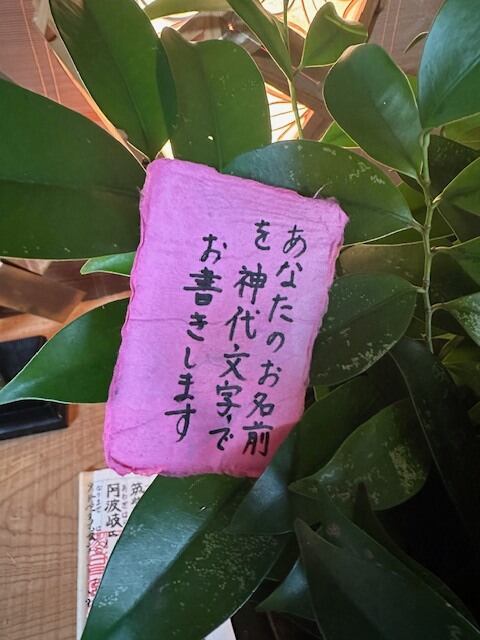 あなたのお名前
を神代文字で
お書きします
阿波岐